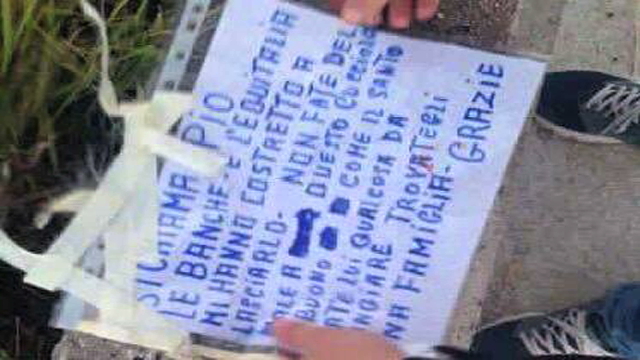 SI CHIAMA PIO
LE BANCHE E L'EQUITALIA
MI HANNO COSTRETTO A
LASCIARLO - NON FATE DEL
MALE A QUESTO CUCCIOLO
BUONO COME IL SANTO
DATE LUI QUALCOSA DA
MANGIARE TROVATEGLI
UNA FAMIGLIA - GRAZIE